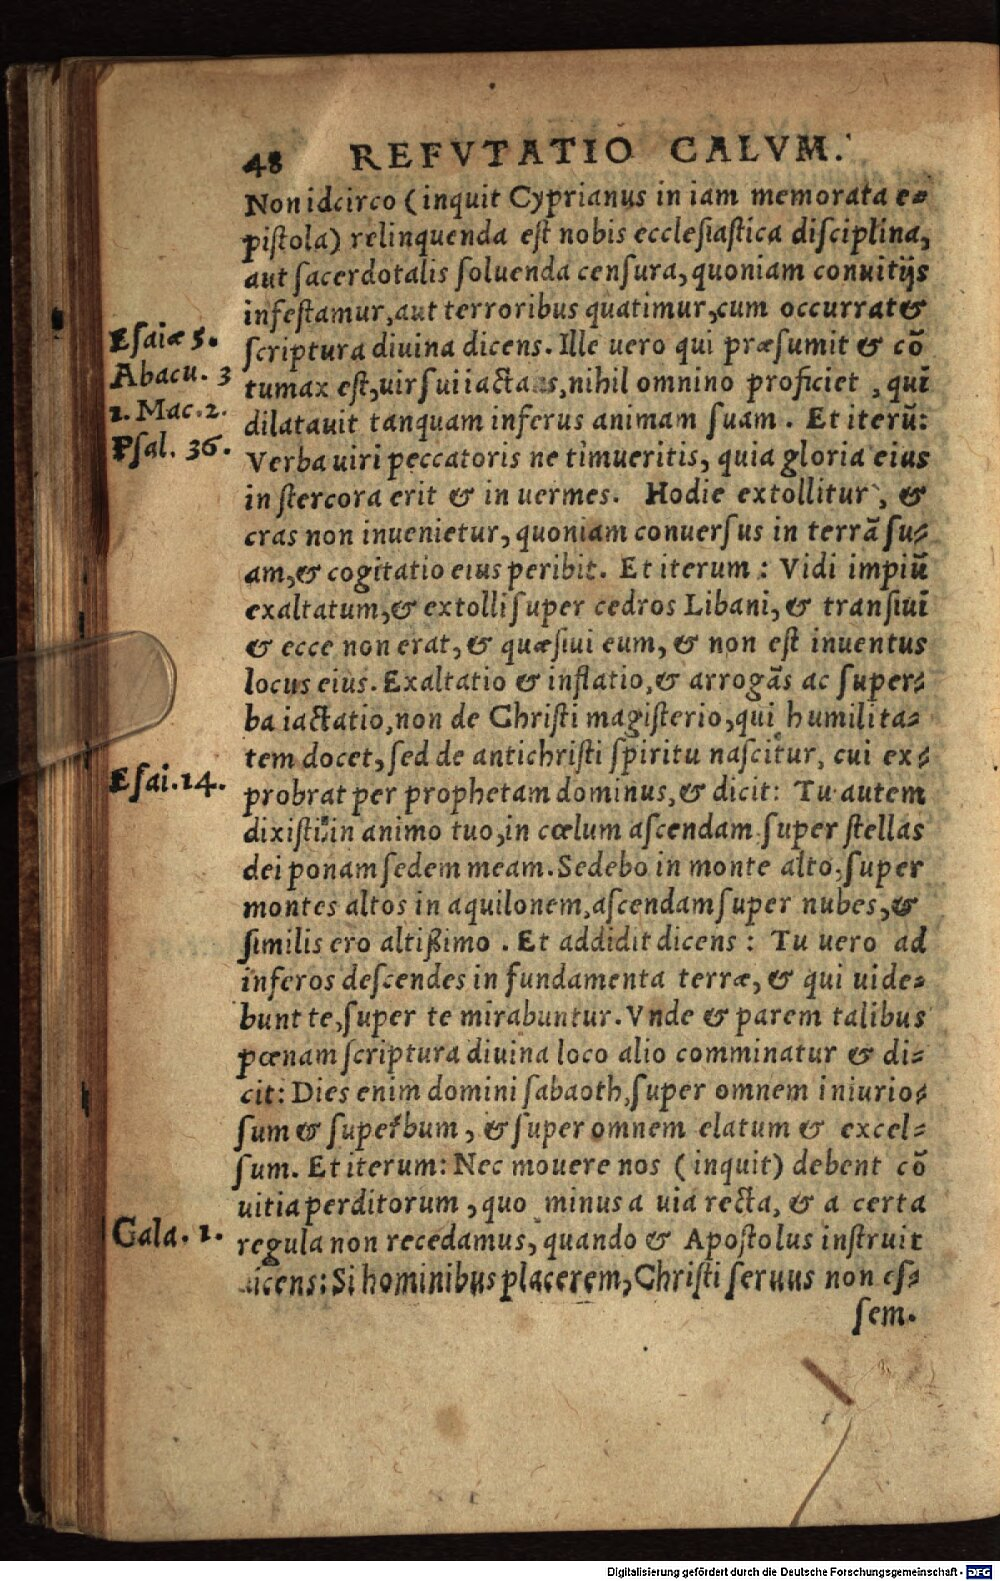 48 REFVTATIO CALVM.
Non idcirco (inquit Cyprianus in iam memorata e-
pistola) relinquenda est nobis ecclesiastica disciplina,
aut sacerdotalis soluenda censura, quoniam conuitijs
infestamur, aut terroribus quatimur, cum occurrat &
Esaiæ 5.
scriptura diuina dicens. Ille uero qui præsumit & cō
Abacu. 3
tumax est, uir sui iactans, nihil omnino proficiet, qui
1. Mac. 2.
dilatauit tanquam inferus animam suam. Et iterū:
Psal. 36.
Verba uiri peccatoris ne timueritis, quia gloria eius
in stercora erit & in uermes. Hodie extollitur, &
cras non inuenietur, quoniam conuersus in terrā su-
am, & cogitatio eius peribit. Et iterum: Vidi impiū
exaltatum, & extolli super cedros Libani, & transiui
& ecce non erat, & quæsiui eum, & non est inuentus
locus eius. Exaltatio & inflatio, & arrogās ac super-
ba iactatio, non de Christi magisterio, qui humilita-
tem docet, sed de antichristi spiritu nascitur, cui ex-
Esai. 14.
probrat per prophetam dominus, & dicit: Tu autem
dixisti in animo tuo, in cœlum ascendam super stellas
dei ponam sedem meam. Sedebo in monte alto, super
montes altos in aquilonem, ascendam super nubes, &
similis ero altißimo. Et addidit dicens: Tu uero ad
inferos descendes in fundamenta terræ, & qui uide-
bunt te, super te mirabuntur. Vnde & parem talibus
pœnam scriptura diuina loco alio comminatur & di-
cit: Dies enim domini sabaoth, super omnem iniurio-
sum & superbum, & super omnem elatum & excel-
sum. Et iterum: Nec mouere nos (inquit) debent cō
uitia perditorum, quo minus a uia recta, & a certa
Gala. 1.
regula non recedamus, quando & Apostolus instruit
dicens: Si hominibus placerem, Christi seruus non es-
sem.
Digitalisierung gefördert durch die Deutsche Forschungsgemeinschaft - DFG